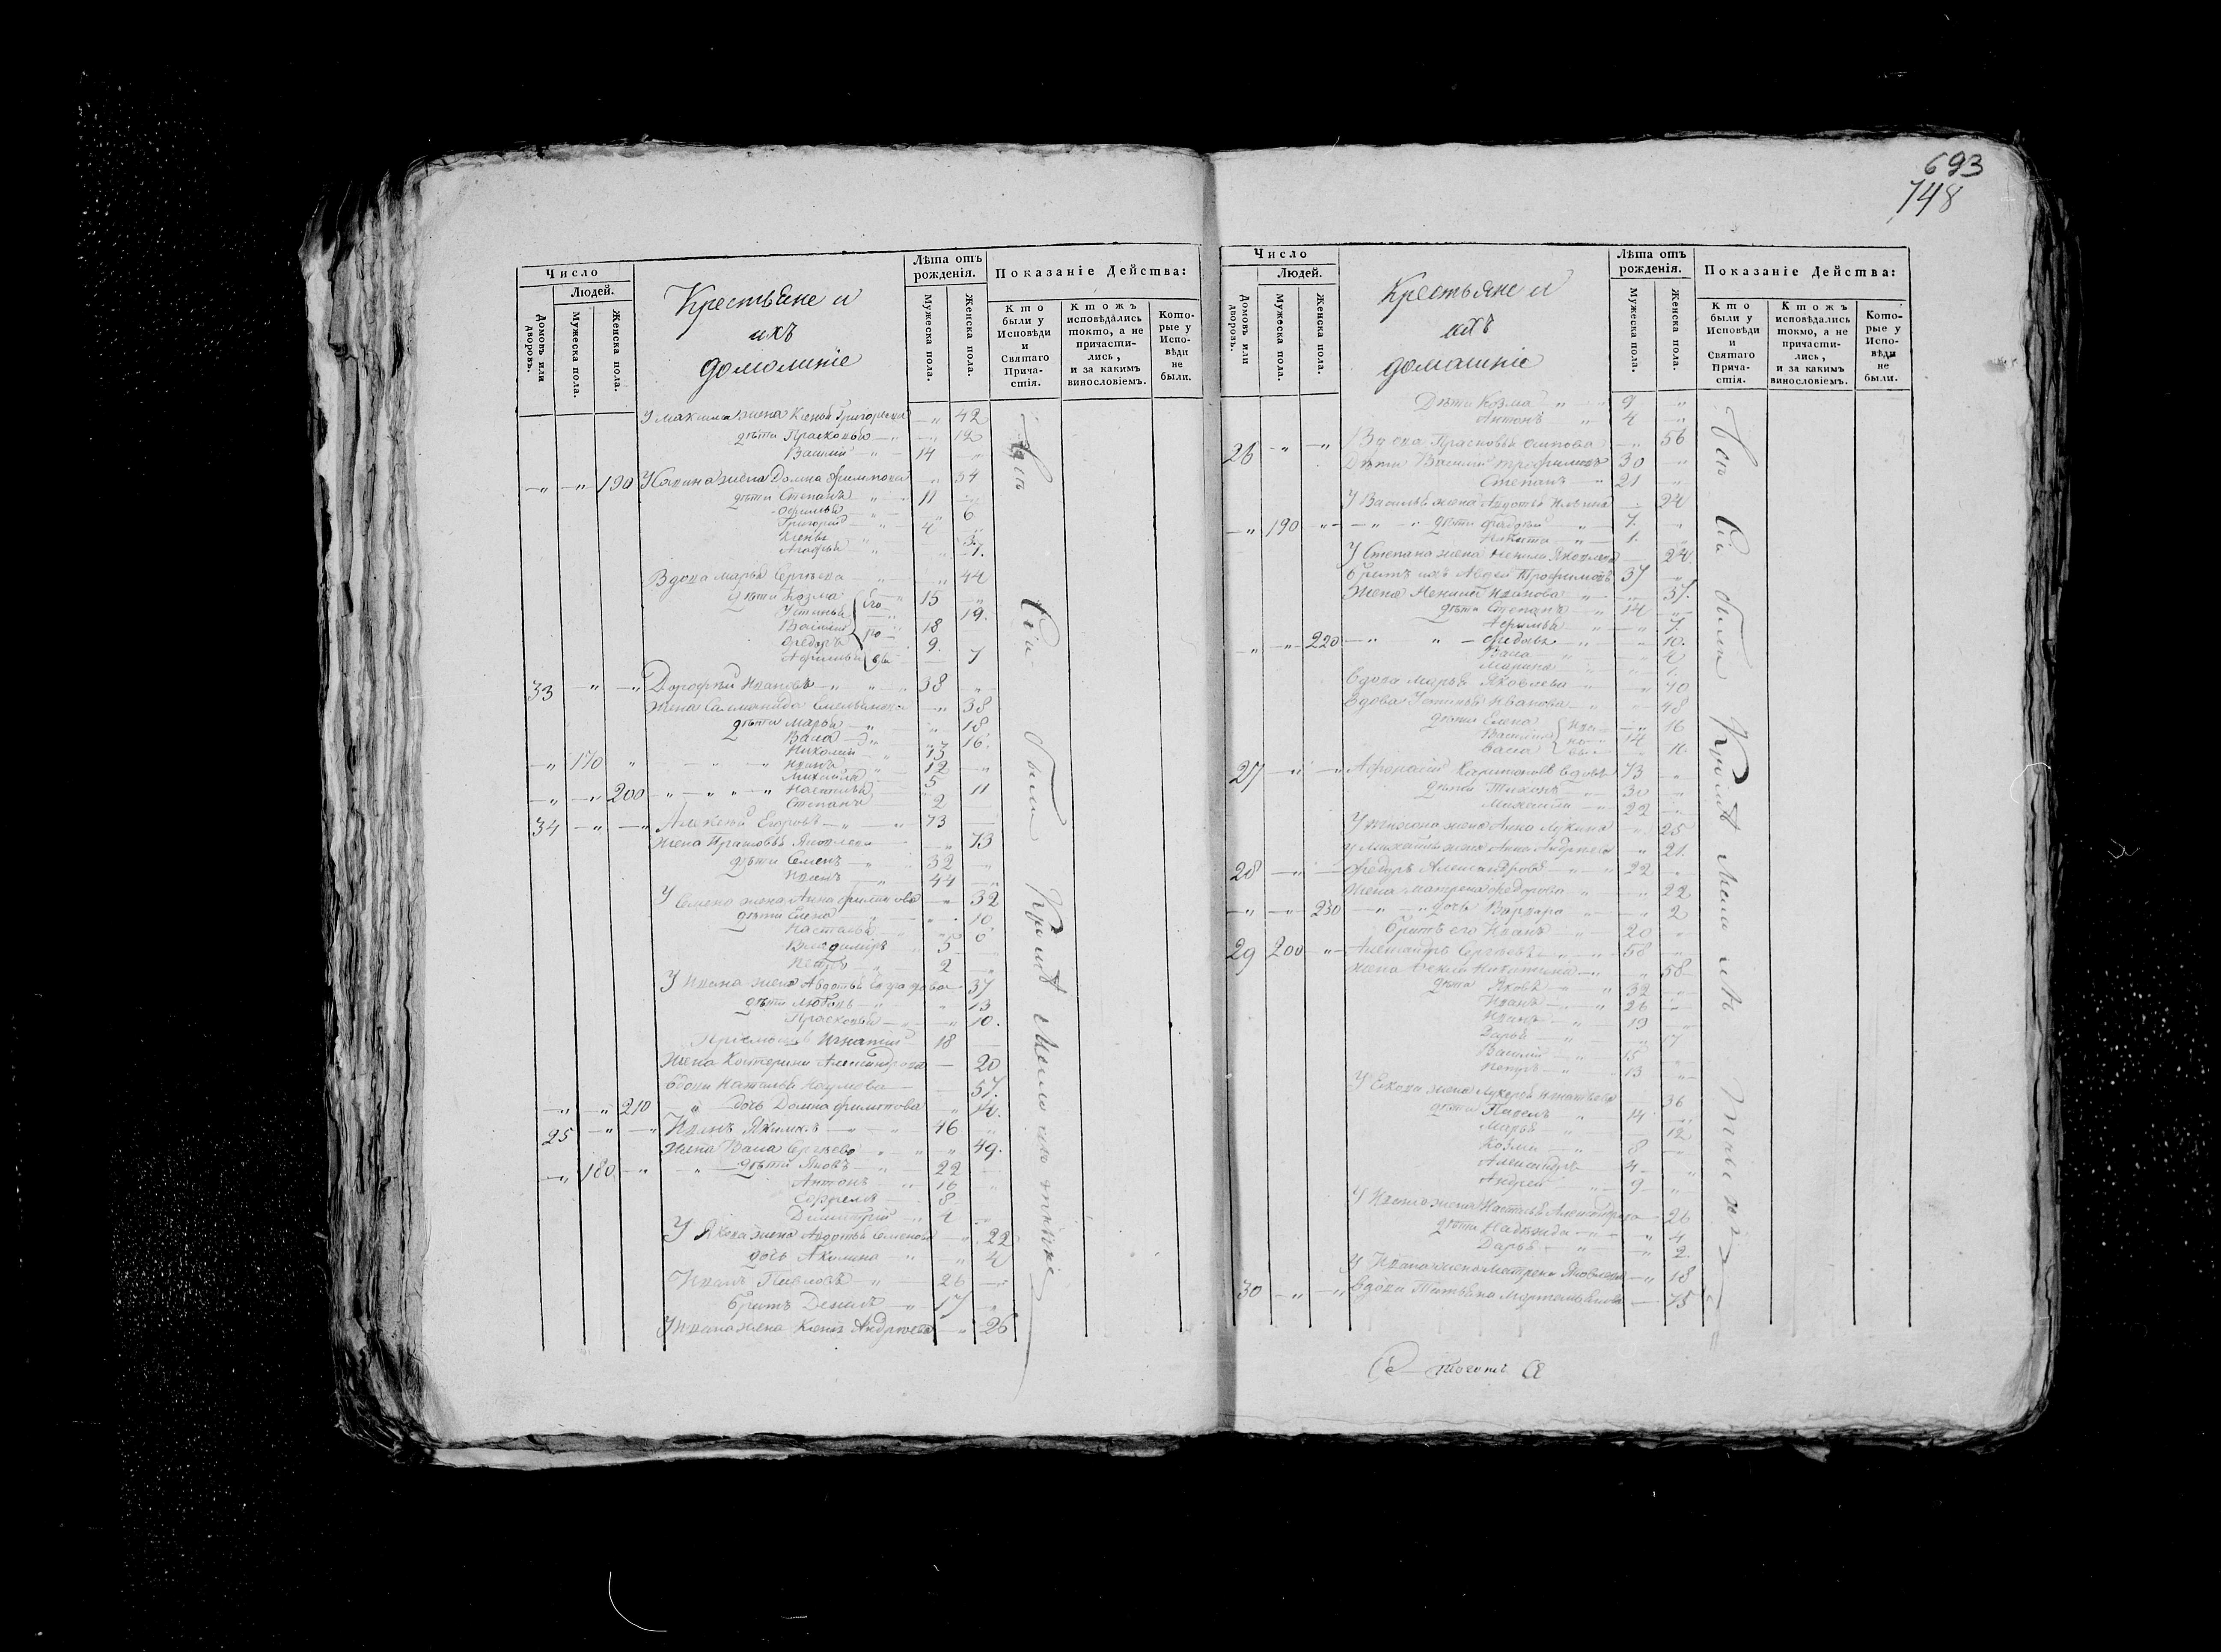 693
748
Число
Людей.
Домовъ или дворовъ.
Мужеска пола.
Женска пола.
Крестьяне и
ихъ
домашніе
Лѣта отъ рожденія.
Мужеска пола.
Женска пола.
Показаніе Действа:
Кто были у Исповѣди и Святаго Причастія.
Ктожъ исповѣдались токто, а не причастились, и за какимъ винословіемъ.
Которые у Исповѣди не были.
У Максима жена Ксенья Григорьева 42
дѣти Прасковья 12
Василій 14
190 жена Домна Филипова 34
дѣти Степанъ 11
Офимья 6
Григорій 4
Ксенья 3.
Агафья 1.
Вдова Марья Сергѣева 44
дѣти Козма 15
Устинья 19.
Василій 18
Федоръ 9.
Афимья 7
33 Дорофѣй Ивановъ 38
жена Саламанида Емельянова 38
дѣти Марья 18
Васа 16.
Николай 13
170 Иванъ 12
Михайла 5
200 Настасья 11
Степанъ 2
34 Алексѣй Егоровъ 73
жена Прасковья Яковлева 73
дѣти Семенъ 32
Иванъ 44
У Семена жена Анна Филипова 32
дѣти Елена 10
Настасья
Владимиръ 5
Петръ 2
У Ивана жена Авдотья 37
дѣти Любовь 13
Прасковья 10.
Игнатій 18
жена Катерина Александрова 20
вдова Наталья Наумова 57.
210 дочь Домна Филипова 14.
25 Иванъ Якимовъ 46
жена Васа Сергѣева 49.
180 дѣти Яковъ 22
Антонъ 16
8
Димитрій 4
У Якова жена Авдотья Семенова 22
дочь Акилина 4
Иванъ Павловъ 26
братъ Денисъ 17
У Ивана жена Ксенія Андреева 26
Всѣ Сіи были Кромѣ Мало лѣтныхъ
Число
Людей.
Домовъ или дворовъ.
Мужеска пола.
Женска пола.
Крестьяне и
ихъ
домашніе
Лѣта отъ рожденія.
Мужеска пола.
Женска пола.
Показаніе Действа:
Кто были у Исповѣди и Святаго Причастія.
Ктожъ исповѣдались токмо, а не причастились, и за какимъ винословіемъ.
Которые у Исповѣди не были.
Дѣти Козма 9
Антонъ 4
26 Вдова Прасковья Осипова 56
Дѣти Василій Трофимовъ 30
Степанъ 21
У Василья жена Авдотья 24
190 дѣти 7.
Никита 1.
У Степана жена Яковлева 24
братъ ихъ Авдей Трофимовъ 37
жена Иванова 37.
дѣти Степанъ 14
Афимья 7.
220 Федосья 10.
Васа 4
1.
вдова Марья Яковлева 40
вдова Устинья Иванова 48
дѣти Елена 16
Василій 14
Васа 11
27 Афонасій Харитоновъ вдовъ 73
дѣти Тихонъ 30
Михайла 22
У Тихона жена Анна Лукина 25
У Михайлы жена Анна Андреева 21.
28 Федоръ Александровъ 22
жена Матрена Федорова 22
230 дочь Варвара 2
братъ его Иванъ 20
29 200 Александръ Сергѣевъ 58
жена Фекла Никитина 58
дѣти Яковъ 32
Иванъ 26
Иванъ 19
Дарья 17
Василій 15
Петръ 13
У Якова жена Лукерья Игнатьева 36
дѣти Павелъ 14
Марья 12
Козма 8
Александръ 4
Андрей 9
У Ивана жена Настасья 26
дѣти Надежда 4
Дарья 2
У Ивана жена Матрена Яковлева 18
30 вдова Татьяна 75
Всѣ Сіи были Кромѣ Мало лѣтныхъ